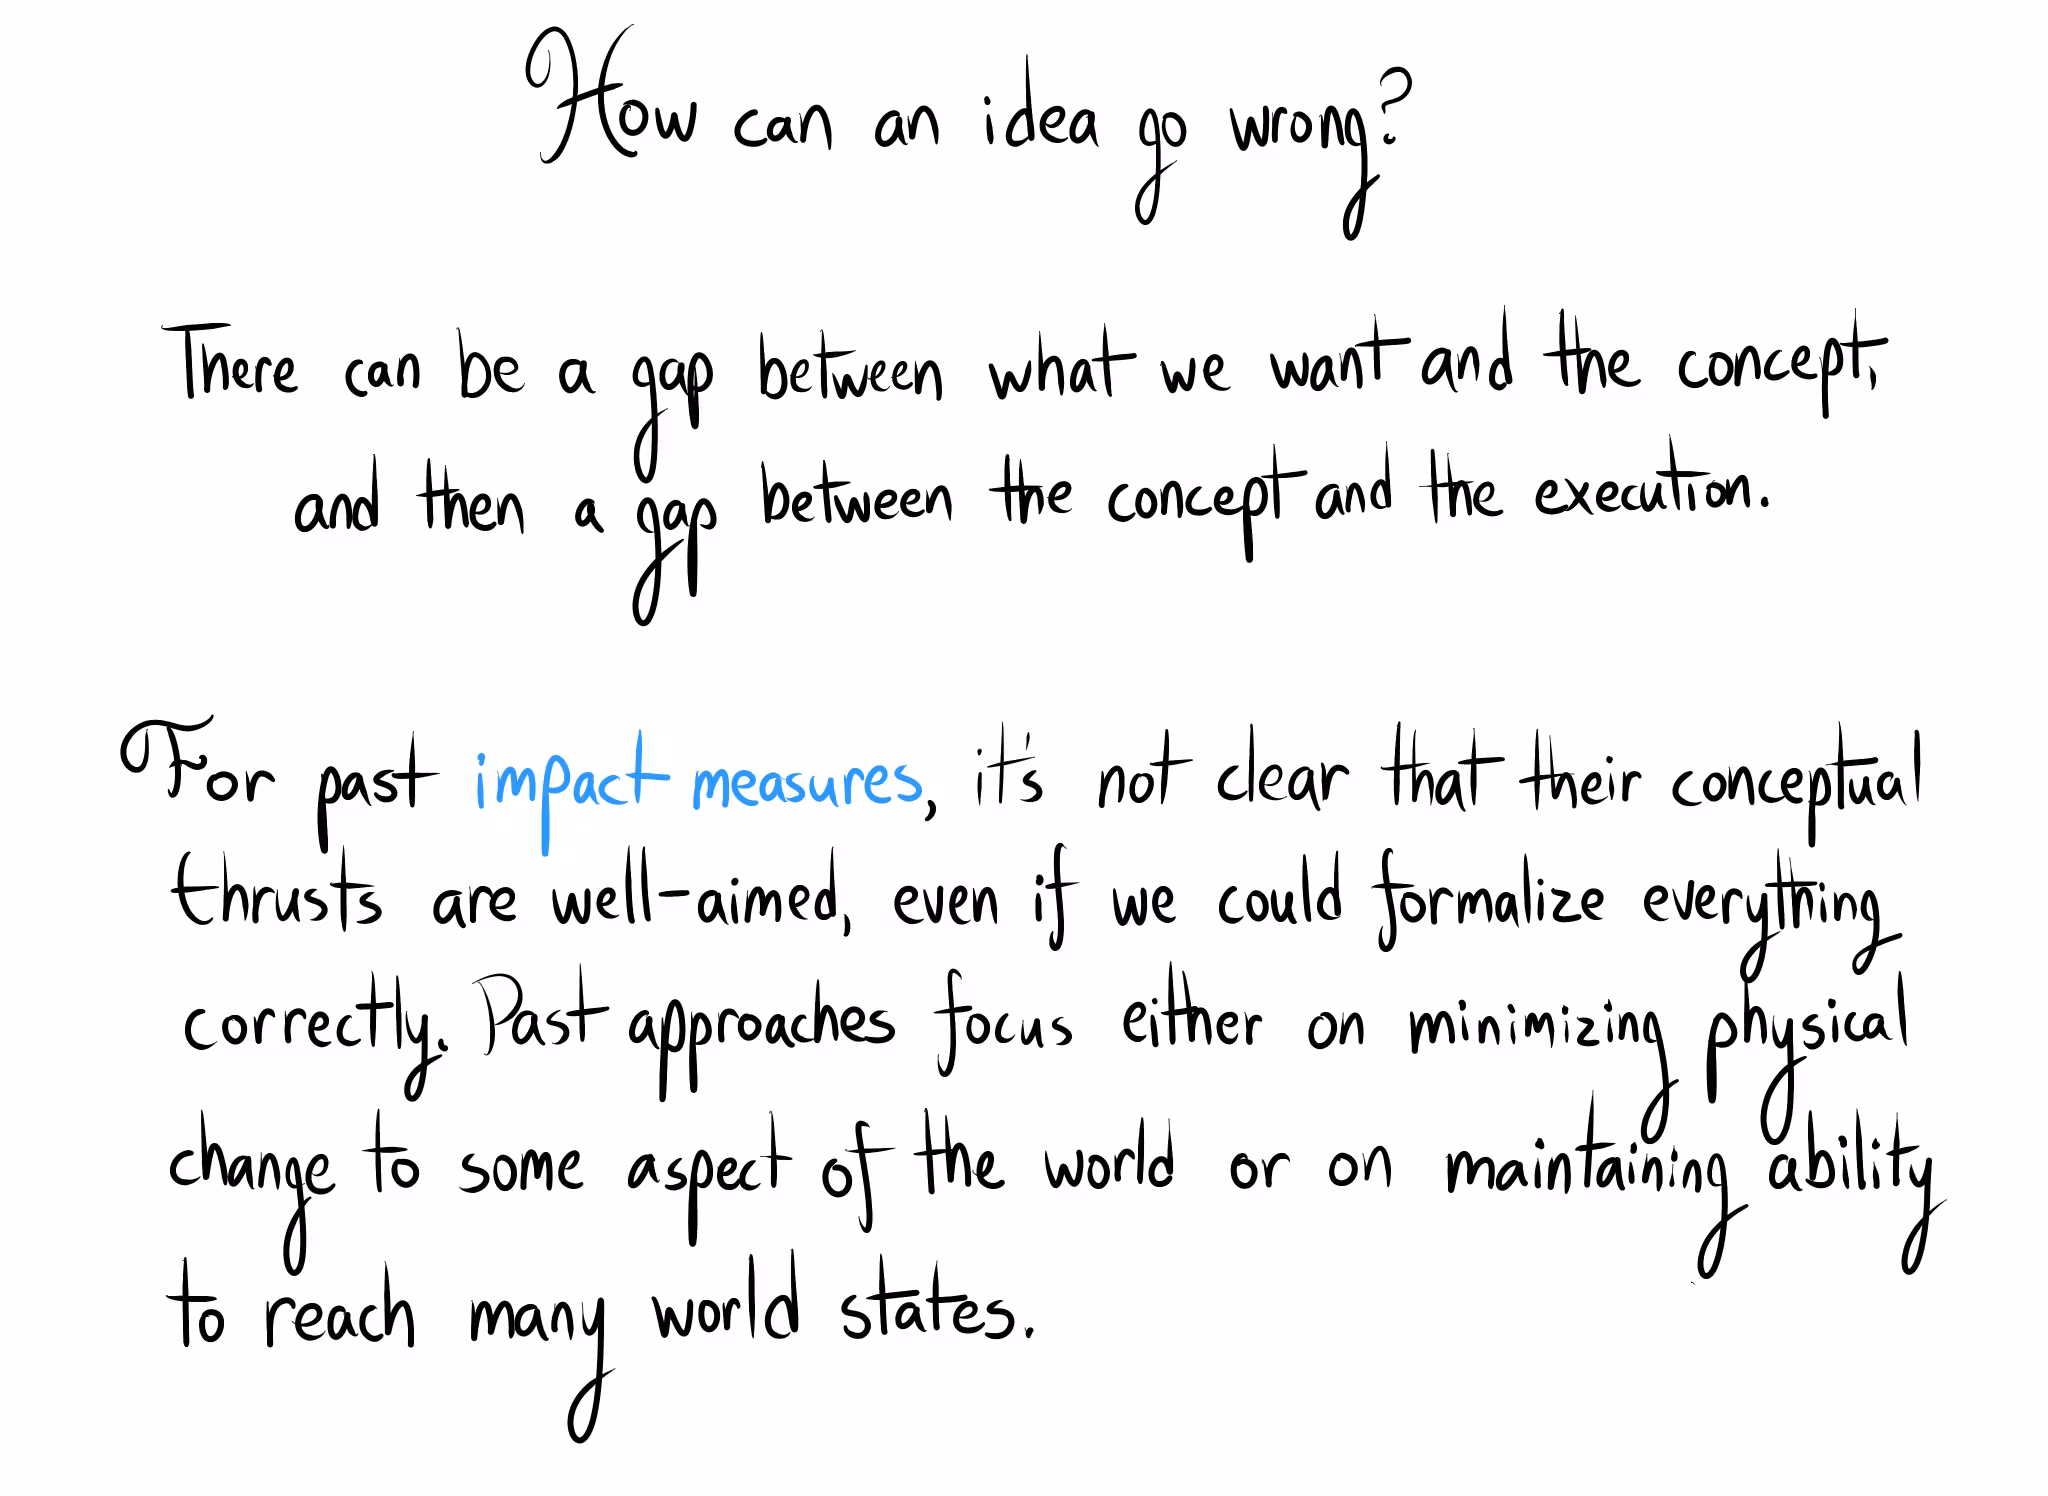 How can an idea go wrong?
There can be a gap between what we want and the concept,
and then a gap between the concept and the execution.
For past impact measures, it's not clear that their conceptual
thrusts are well-aimed, even if we could formalize everything
correctly. Past approaches focus either on minimizing physical
change to some aspect of the world or on maintaining ability
to reach many world states.